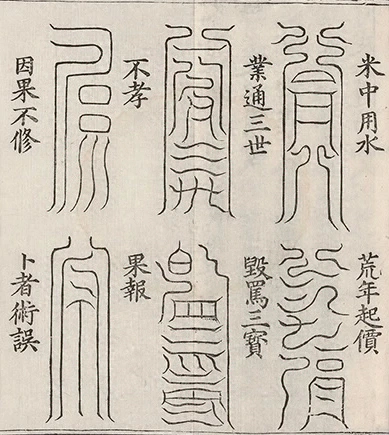 米中用水
業通三世
不孝
因果不修
荒年起價
毀罵三寳
果報
卜者術誤